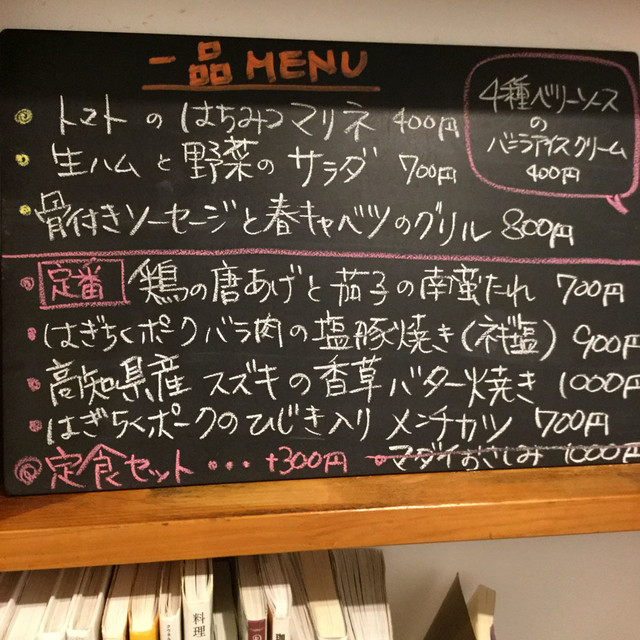 一品MENU
トマトのはちみつマリネ 400円
生ハムと野菜のサラダ 700円
骨付きソーセージと春キャベツのグリル 800円
4種ベリーソース
の
バニラアイスクリーム
400円
定番 鶏の唐あげと茄子の南蛮たれ 700円
はぎちくポークバラ肉の塩豚焼き(ネギ塩) 900円
高知県産 スズキの香草バター焼き 1000円
はぎちくポークのひじき入りメンチカツ 700円
定食セット・・・+300円
マダイおさしみ 1000円
料理